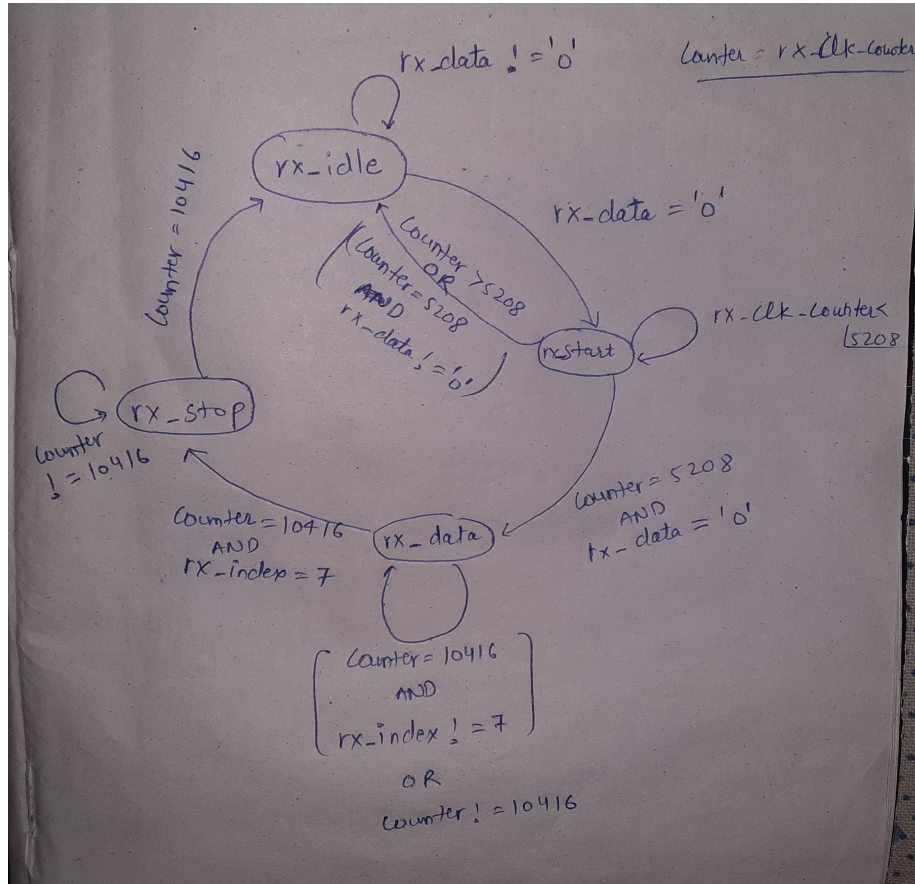 rx_data != '0'
Counter = rx_Clk_Counter
rx_idle
Counter = 10416
rx_data = '0'
Counter > 5208
OR
(Counter = 5208
AND
rx_data != '0')
rx_start
rx_Clk_Counter <
5208
rx_stop
Counter
! = 10416
Counter = 5208
AND
rx_data = '0'
Counter = 10416
AND
rx_index = 7
rx_data
Counter = 10416
AND
rx_index ! = 7
OR
Counter ! = 10416